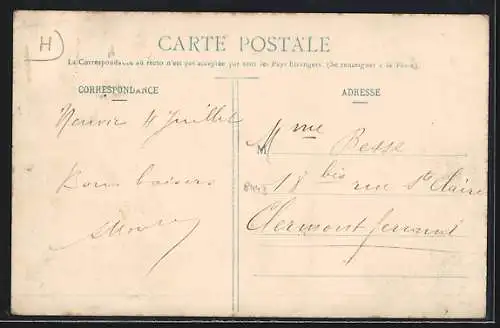 H
CARTE POSTALE
La Correspondance au recto n'est pas acceptée par tous les Pays Étrangers. (Se renseigner à la Poste).
CORRESPONDANCE
ADRESSE
Neuvic 4 Juillet
Bons baisers
M
Mme Besse
18 bis rue Ste Claire
Clermont ferrand